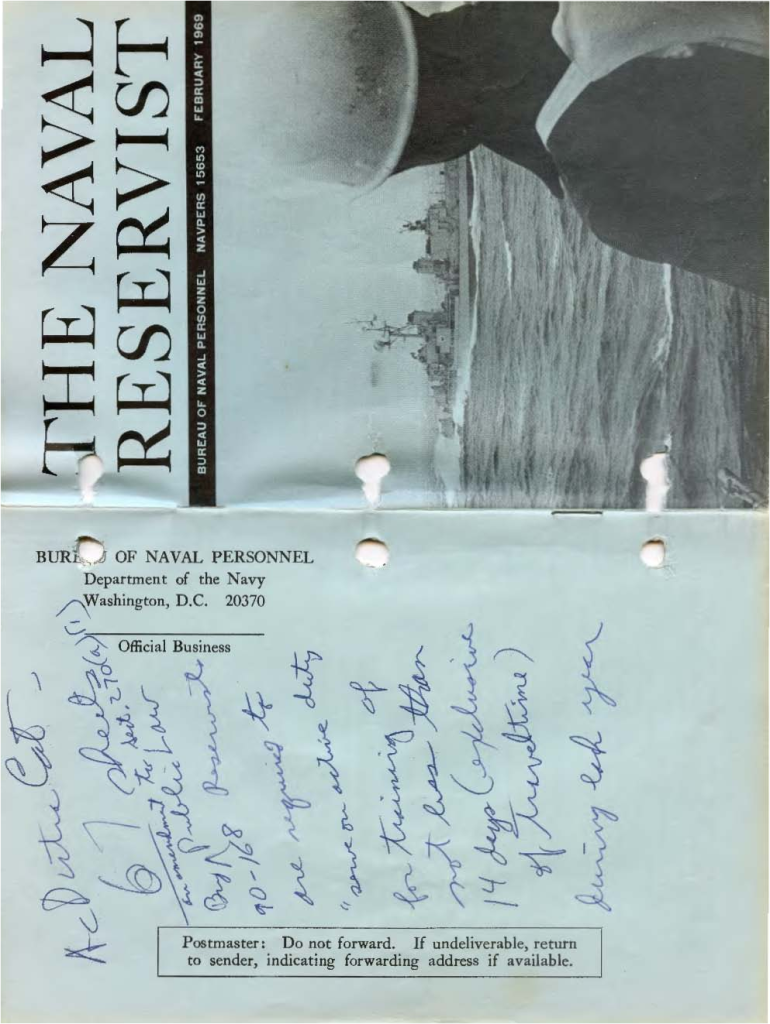 THE NAVAL
RESERVIST
BUREAU OF NAVAL PERSONNEL NAVPERS 15653 FEBRUARY 1969
OF NAVAL PERSONNEL
Department of the Navy
Washington, D.C. 20370
Official Business
67 sheets
an amendment to sec. 270(a)(1)
By Public Law
90-168 Reservists
are required to
"serve on active duty
for training of
not less than
14 days (exclusive
of traveltime)
during each year
Postmaster: Do not forward. If undeliverable, return
to sender, indicating forwarding address if available.